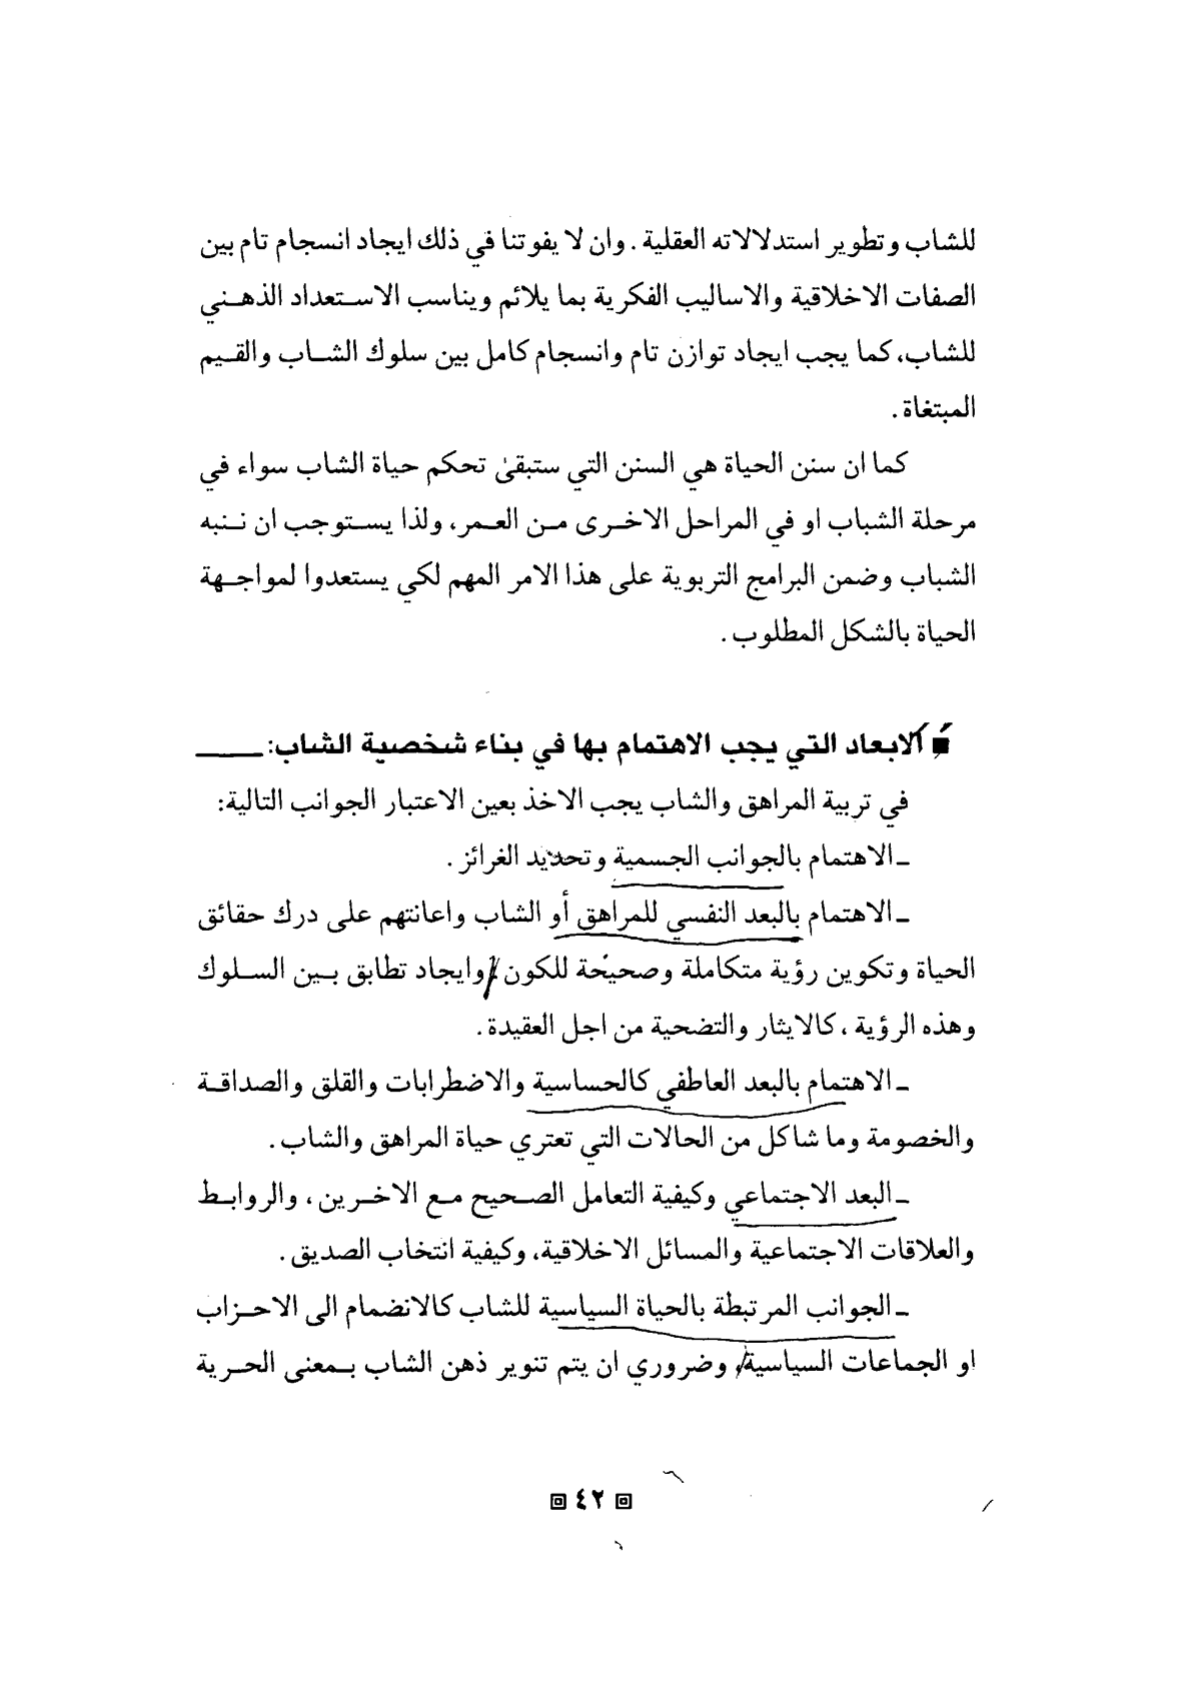 للشاب وتطوير استدلالاته العقلية . وان لا يفوتنا في ذلك ايجاد انسجام تام بين
الصفات الاخلاقية والاساليب الفكرية بما يلائم ويناسب الاستعداد الذهني
للشاب، كما يجب ايجاد توازن تام وانسجام كامل بين سلوك الشاب والقيم
المبتغاة .
كما ان سنن الحياة هي السنن التي ستبقىٰ تحكم حياة الشاب سواء في
مرحلة الشباب او في المراحل الاخرى من العمر، ولذا يستوجب ان ننبه
الشباب وضمن البرامج التربوية على هذا الامر المهم لكي يستعدوا لمواجهة
الحياة بالشكل المطلوب .
■ الابعاد التي يجب الاهتمام بها في بناء شخصية الشاب:
في تربية المراهق والشاب يجب الاخذ بعين الاعتبار الجوانب التالية:
ـ الاهتمام بالجوانب الجسمية وتحديد الغرائز .
ـ الاهتمام بالبعد النفسي للمراهق أو الشاب واعانتهم على درك حقائق
الحياة وتكوين رؤية متكاملة وصحيحة للكون، وايجاد تطابق بين السلوك
وهذه الرؤية ، كالايثار والتضحية من اجل العقيدة .
ـ الاهتمام بالبعد العاطفي كالحساسية والاضطرابات والقلق والصداقة
والخصومة وما شاكل من الحالات التي تعتري حياة المراهق والشاب .
ـ البعد الاجتماعي وكيفية التعامل الصحيح مع الاخرين ، والروابط
والعلاقات الاجتماعية والمسائل الاخلاقية، وكيفية انتخاب الصديق .
ـ الجوانب المرتبطة بالحياة السياسية للشاب كالانضمام الى الاحزاب
او الجماعات السياسية، وضروري ان يتم تنوير ذهن الشاب بمعنى الحرية
٤٢